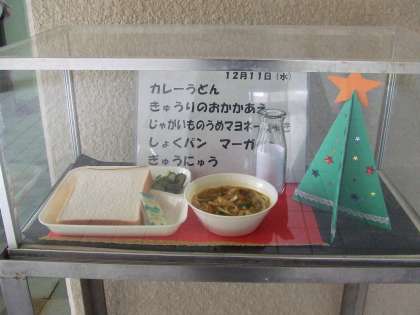 12月11日(水)
カレーうどん
きゅうりのおかかあえ
じゃがいものうめマヨネーやき
しょくパン マーガ
ぎゅうにゅう